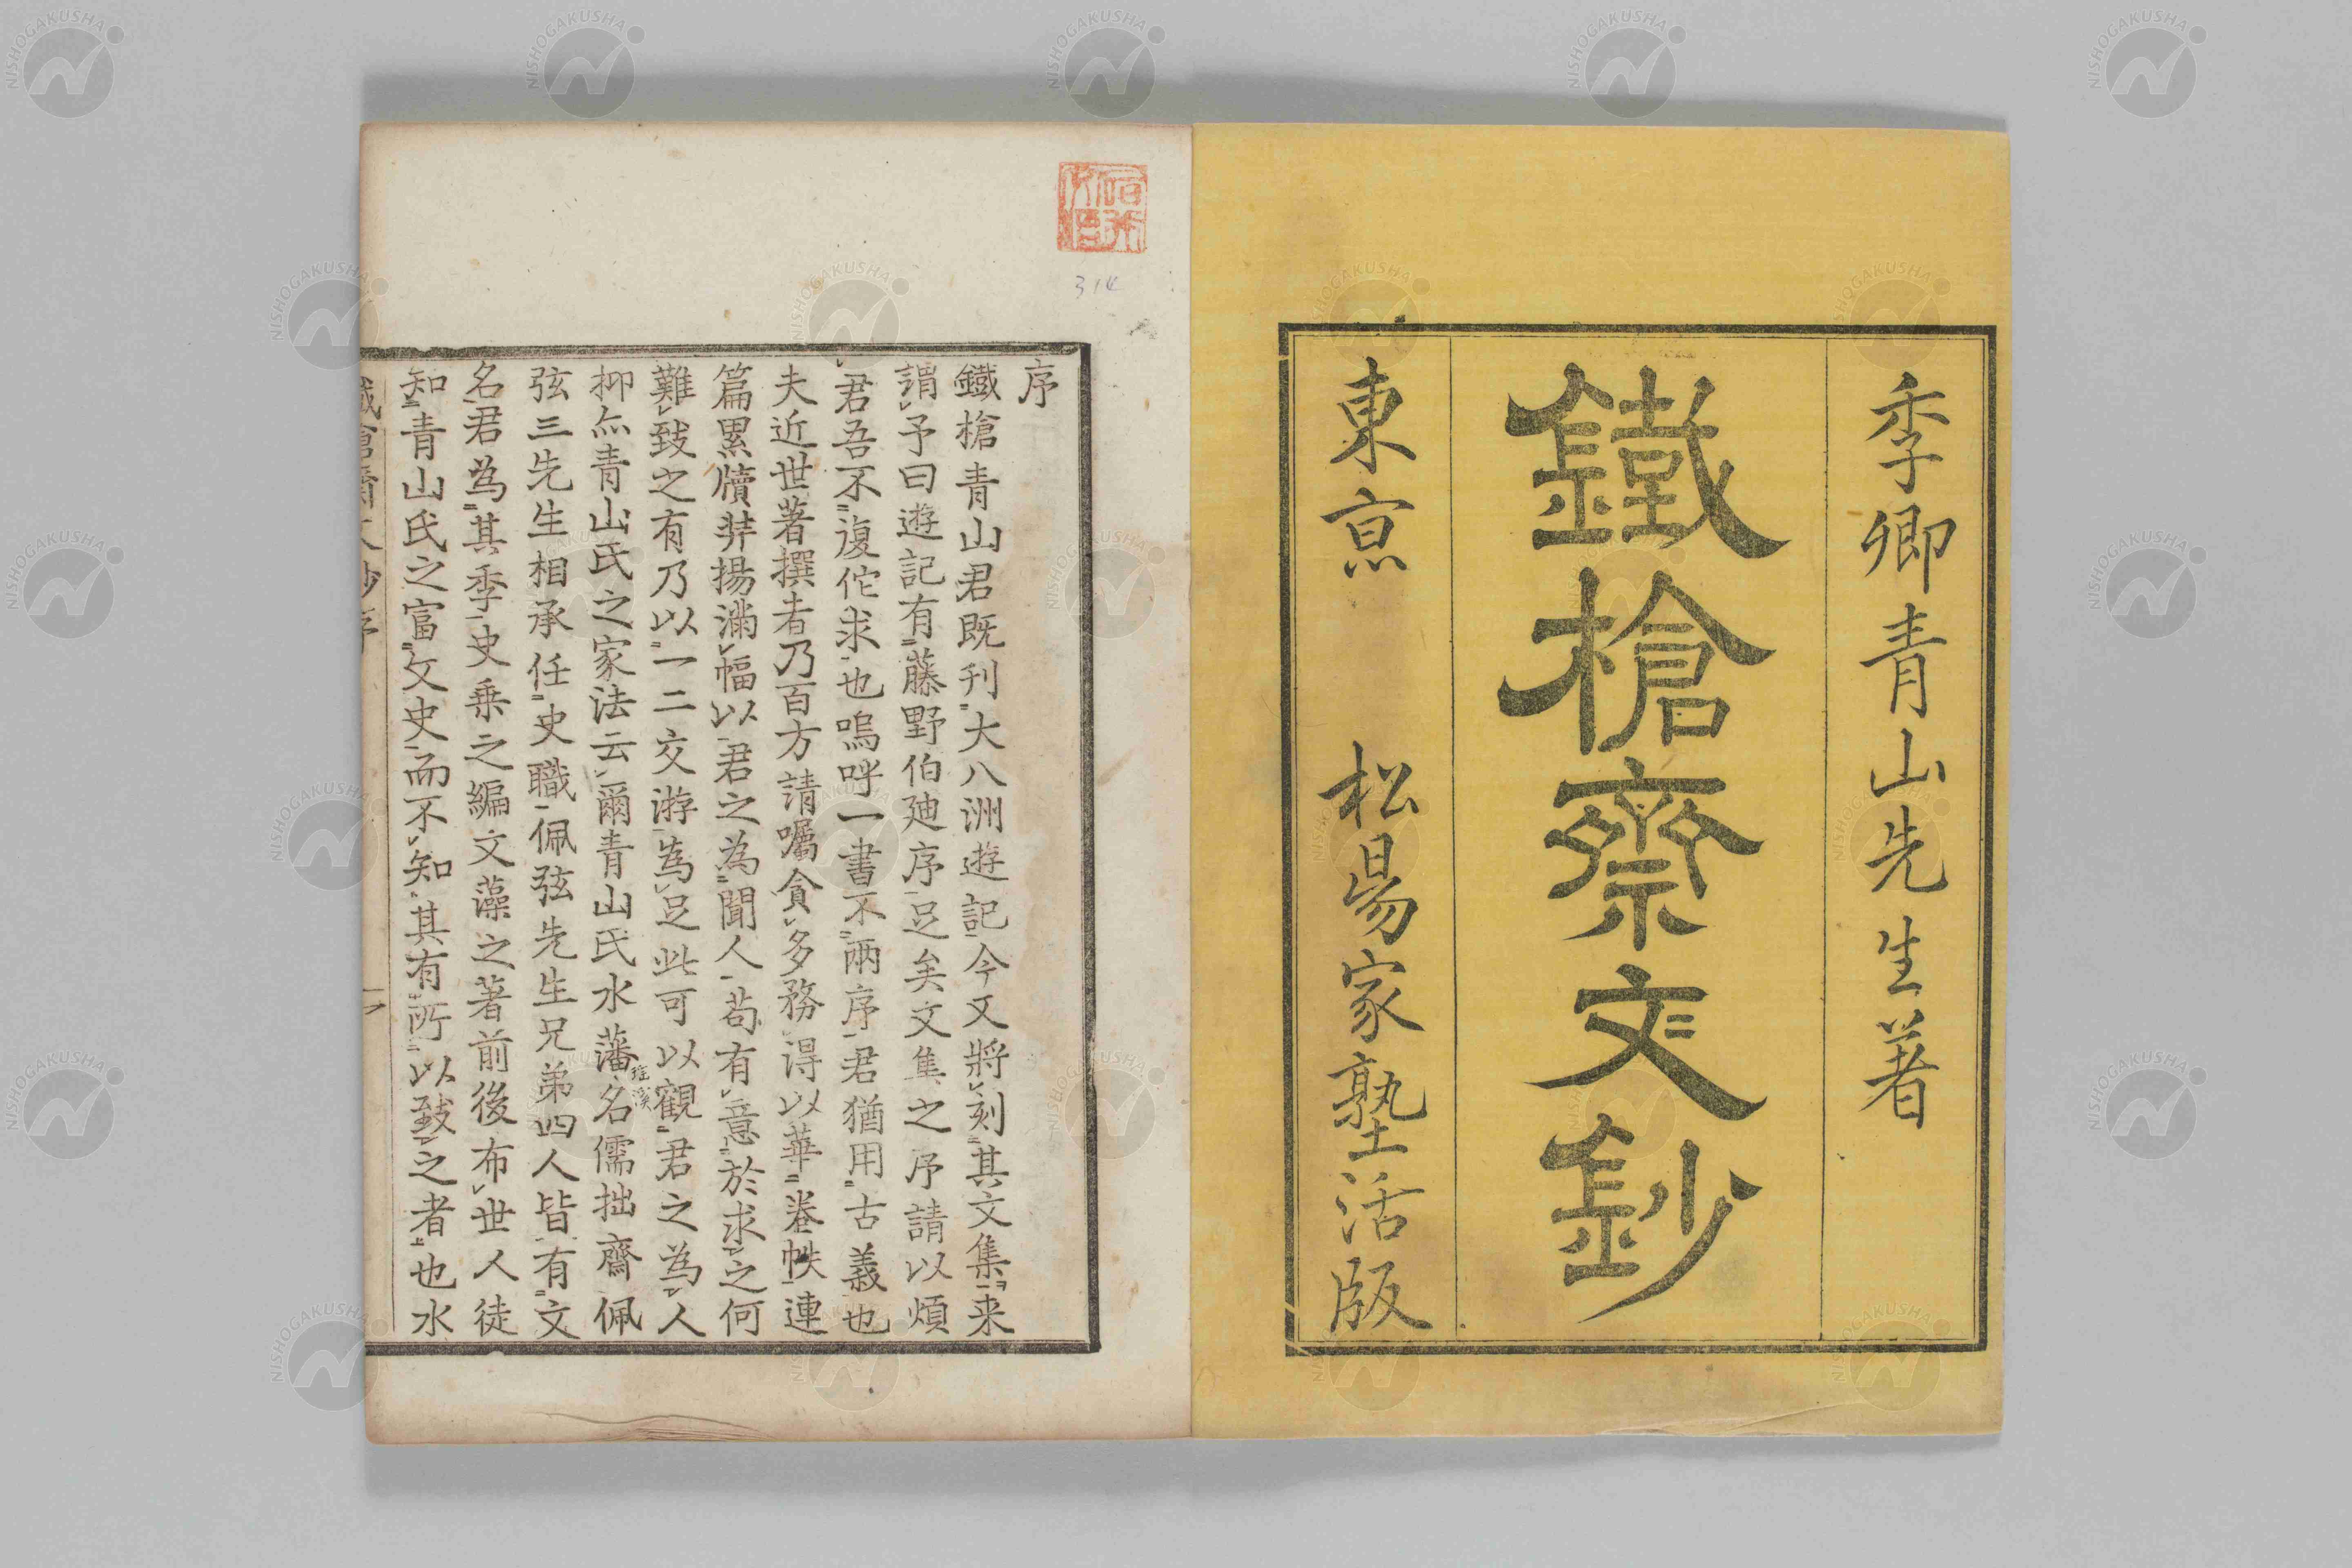 季卿青山先生著
鐵槍齋文鈔
東亰 松昜家塾活版
314
序
鐵槍青山君既刊大八洲遊記今又將刻其文集来
謂予曰遊記有藤野伯廸序足矣文集之序請以煩
君吾不復佗求也嗚呼一書不兩序君猶用古義也
夫近世著撰者乃百方請囑貪多務得以華卷帙連
篇累牘非揚滿幅以君之為聞人苟有意於求之何
難致之有乃以一二交游為足此可以觀君之為人
抑亦青山氏之家法云爾青山氏水藩名儒拙齋佩
弦三先生相承任史職佩弦先生兄弟四人皆有文
名君為其季史乗之編文藻之著前後布世人徒
知青山氏之富文史而不知其有所以致之者也水
鐵槍齋文鈔序 一
NISHOGAKUSHA